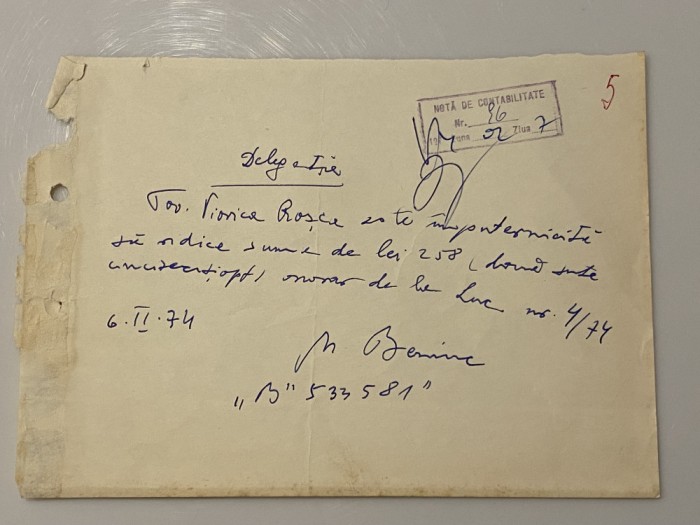 5
NOTĂ DE CONTABILITATE
Nr. 26
02 Ziua 7
Delegație
Tov. Viorica Roșca este împuternicită
să ridice suma de lei 258 (două sute
cincizecișiopt) onorar de la Luc nr. 4/74
6.II.74
„B" 533581"